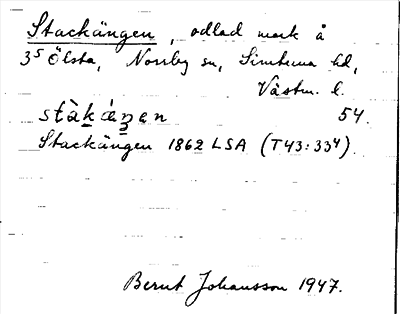 Stackängen, odlad mark å
3⁵ Ölsta, Norrby sn, Simtuna hd,
Västm. l.
stàkǽŋen 54.
Stackängen 1862 LSA (T43:33⁴).
Bernt Johansson 1947.